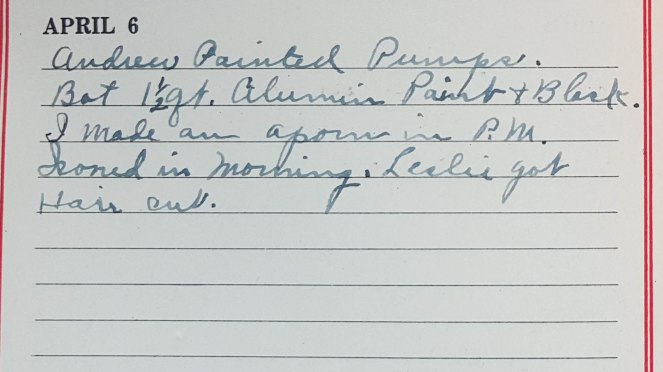 APRIL 6
Andrew Painted Pumps.
Bot 1½ qt. Alumin Paint + Black.
I made an aporn in P.M.
Ironed in Morning. Leslie got
Hair cut.